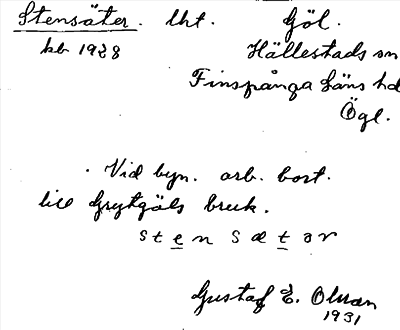 Stensäter. lht. Göl.
kb 1928 Hällestads sn
Finspånga läns hd
Ögl.
Vid byn. arb. bost.
till Grytgöls bruk.
sten sætər
Gustaf E. Olsson
1931